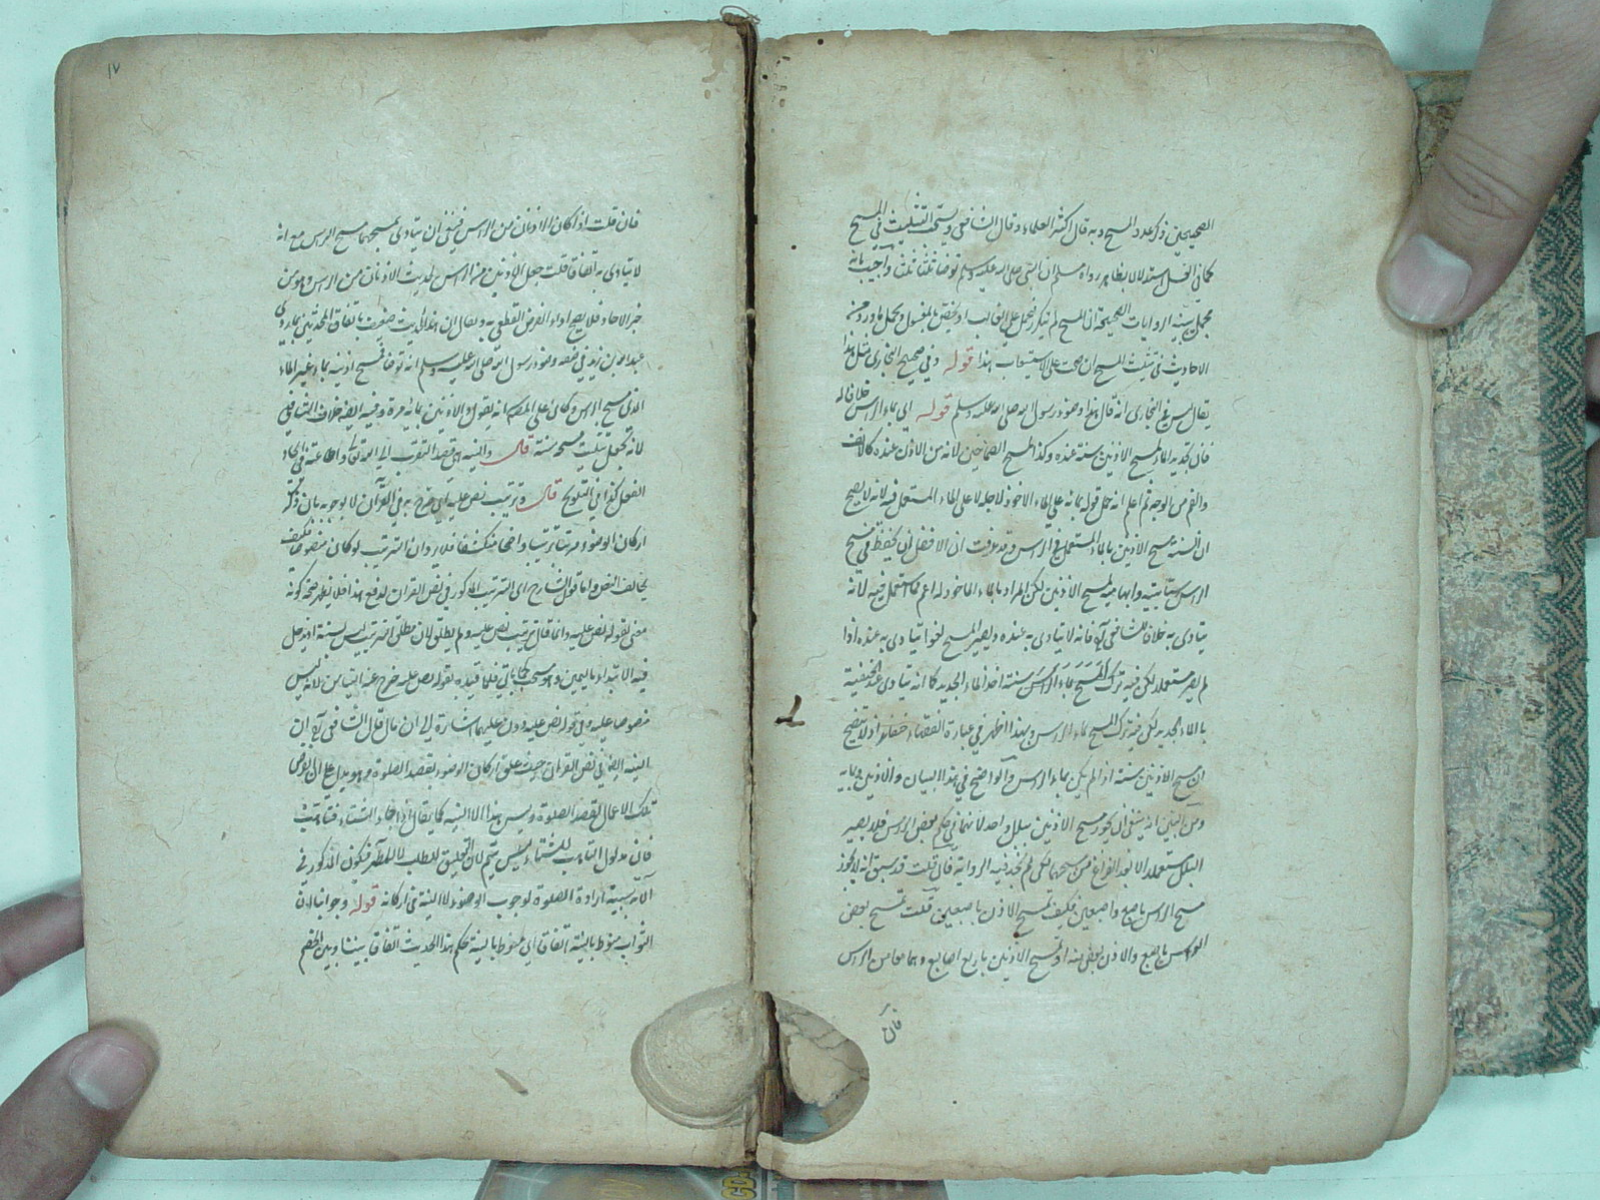 الصحيحين ذكر عدد المسح وبه قال اكثر العلماء وقال الشافعي ويستحب التثليث في المسح
كما في الغسل استدلالا بظاهر رواه مسلم ان النبي صلى الله عليه وسلم توضأ ثلثا ثلثا واجيب بانه
مجمل يبينه الروايات الصحيحة ان المسح لم يتكرر فيحمل على الغالب او يختص بالمغسول ويحمل ما ورد من
الاحاديث في تثليث المسح ان صحت على الاستيعاب هذا قوله وفي صحيح البخاري مثل هذا
قال هذا وضوء رسول الله صلى الله عليه وسلم قوله اي بماء الراس خلافا له
فان تجديد الماء لمسح الاذنين سنة عنده وكذا لمسح الصماخين لانه من الاذن عنده كالانف
والفم من الوجه ثم اعلم انه حمل قوله بمائه على الماء الماخوذ لاجله لا على الماء المستعمل فيه لانه لا يصح
ان السنة مسح الاذنين بالماء المستعمل في الراس وقد عرفت ان الافضل ان يحفظ في مسح
الراس سبابتيه وابهاميه لمسح الاذنين لكن المراد بالماء الماخوذ له اعم مما استعمل فيه لانه
يتادى به خلافا للشافعي فانه لا يتادى به عنده ويصير المسح لغوا يتادى به عنده اذا
لم يصر مستعملا لكن فيه ترك المسح بماء الراس سنة اخذ الماء الجديد كما انه يتادى عند الحنفية
بالماء الجديد لكن فيه ترك المسح بماء الراس وبهذا اظهر في عبارة الفقهاء اذ لا يتضح
ان مسح الاذنين سنة اذا لم يكن بماء الراس والواضح في هذا البيان والاذنين بمائه
ومن البين انه ينبغي ان يكون مسح الاذنين ببلل واحد لانهما في حكم بعض الراس فلا يصير
البلل مستعملا الا بعد الفراغ من مسحهما لكن لم نجد فيه الرواية فان قلت قد سبق انه لا يجوز
مسح الراس باصبع واصبعين فكيف تمسح الاذن باصبعين قلت تمسح بعض
الراس باصبع والاذن بعض منه او تمسح الاذنين باربع اصابع وهما معا من الراس
فان
١٧
فان قلت اذا كان الاذنان من الراس فينبغي ان يتادى بمسحهما مسح الراس مع انه
لا يتادى به اتفاقا قلت جعل الاذنين من الراس لحديث الاذنان من الراس وهو من
خبر الاحاد فلا يصح اداء الفرض القطعي به ويقال ان هذا الحديث ضعيف باتفاق المحدثين بما روى
عبد الله بن زيد في صفة وضوء رسول الله صلى الله عليه وسلم انه توضأ فمسح اذنيه بماء غير الماء
الذي مسح به الراس وكان على المصنف ان يقول والاذنين بمائه مرة وفيه ايضا خلاف الشافعي
لانه يجعل تثليث مسحه سنة قال والنية اي قصد التقرب الى الله تعالى واطاعته في ايجاد
الفعل كذا في التلويح قال وترتيب نص عليه اي صرح به في القرآن لا يوجد بان ذكر
اركان الوضوء مرتبا ترتيبا واضحا منكشفا فلا يرد ان الترتيب لو كان منصوصا فكيف
يخالف النص واما قول الشارح اي الترتيب المذكور في نص القرآن لدفع هذا فلا يظهر صحة كونه
معنى لقوله نص عليه وانما قال ترتيب نص عليه ولم يطلق لان مطلق الترتيب ليس بسنة اذ يدخل
فيه الابتداء باليمين وهو مستحب كما ياتي فلما قيده بقوله نص عليه خرج عنه التيامن لانه ليس
منصوصا عليه وفي قوله نص عليه دون عليهما اشارة الى ان ما قال الشافعي ان
النية ايضا في نص القرآن حيث علق اركان الوضوء بقصد الصلوة وهو يدل على ان يؤتى
تلك الاعمال لقصد الصلوة وليس هذا الا النية كما يقال اذا جاء الشتاء فتاهب
فان مدلول التاهب للشتاء ليس بتم لان التعليق للطلب لا للمطلوب فيكون المذكور في
الآية سببية ارادة الصلوة لوجوب الوضوء لا النية في اركانه قوله وجوابنا ان
الثواب منوط بالنية اتفاقا اي منوط بالنية بحكم هذا الحديث اتفاقا بيننا وبين الخصم